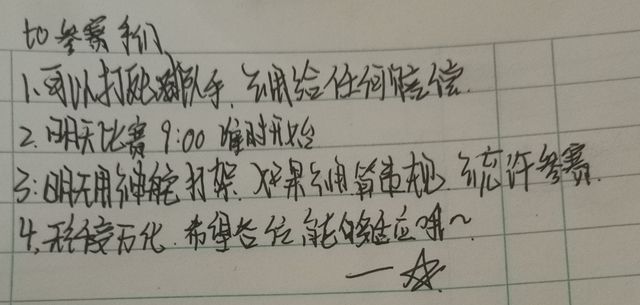 to 参赛手们
1.可以打死对手,不用给任何赔偿.
2.明天比赛 9:00 准时开始
3:明天用神舵打架.后果不用管 违规 允许参赛.
4.千变万化.希望各位能够适应哦~
一☆